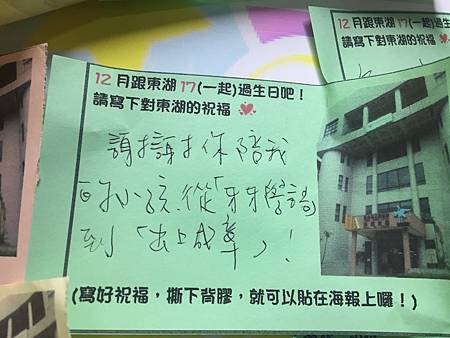 12月跟東湖17(一起)過生
請寫下對東湖的祝福
12月跟東湖17(一起)過生日吧!
請寫下對東湖的祝福
謝謝你陪我
的小孩從「牙牙學語」
到「出口成章」!
(寫好祝福,撕下背膠,就可以貼在海報上囉!)